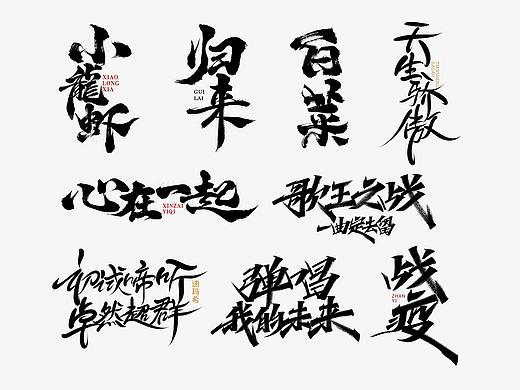 小龍虾
XIAO
LONG
XIA
归来
GUI
LAI
百菜
天生骄傲
心在一起
XINZAI
YIQI
歌王之战
一曲定去留
初试啼听
卓然超群
迪玛希
弹唱
我的未来
战疫
ZHAN
YI